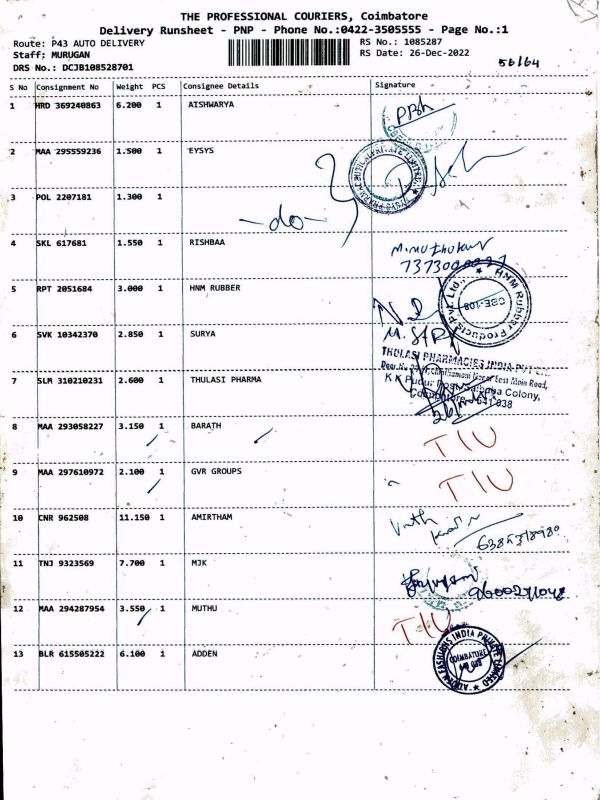 THE PROFESSIONAL COURIERS, Coimbatore
Delivery Runsheet - PNP - Phone No.:0422-3505555 - Page No.:1
Route: P43 AUTO DELIVERY RS No.: 1085287
Staff: MURUGAN RS Date: 26-Dec-2022
DRS No.: DCJB108528701
S No Consignment No Weight PCS Consignee Details Signature
1 HRD 369240863 6.200 1 AISHWARYA
2 MAA 295559236 1.500 1 EYSYS
3 POL 2207181 1.300 1
-do-
4 SKL 617681 1.550 1 RISHBAA
5 RPT 2051684 3.000 1 HNM RUBBER
HNM Rubber Products Pvt. Ltd.,
CBE-108
6 SVK 10342370 2.850 1 SURYA
THULASI PHARMACIES INDIA PVT
7 SLM 310210231 2.600 1 THULASI PHARMA
8 MAA 293058227 3.150 1 BARATH T/U
9 MAA 297610972 2.100 1 GVR GROUPS T/U
10 CNR 962508 11.150 1 AMIRTHAM
11 TNJ 9323569 7.700 1 MJK
12 MAA 294287954 3.550 1 MUTHU T/U
13 BLR 615505222 6.100 1 ADDEN
COIMBATORE